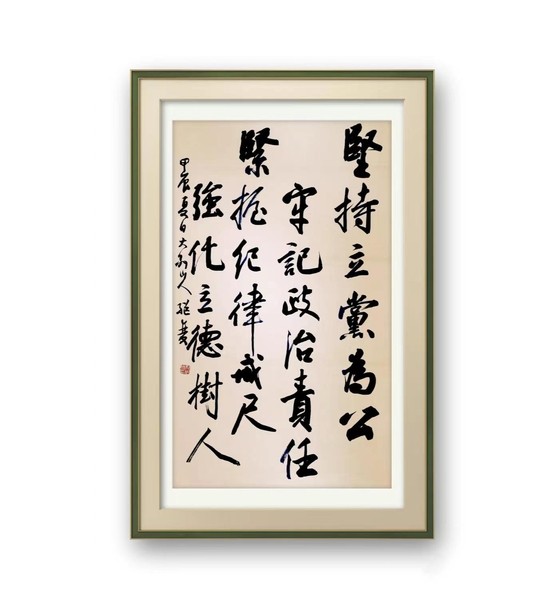 堅持立黨為公
牢記政治責任
緊握纪律戒尺
強化立德樹人
甲辰夏日大別山人